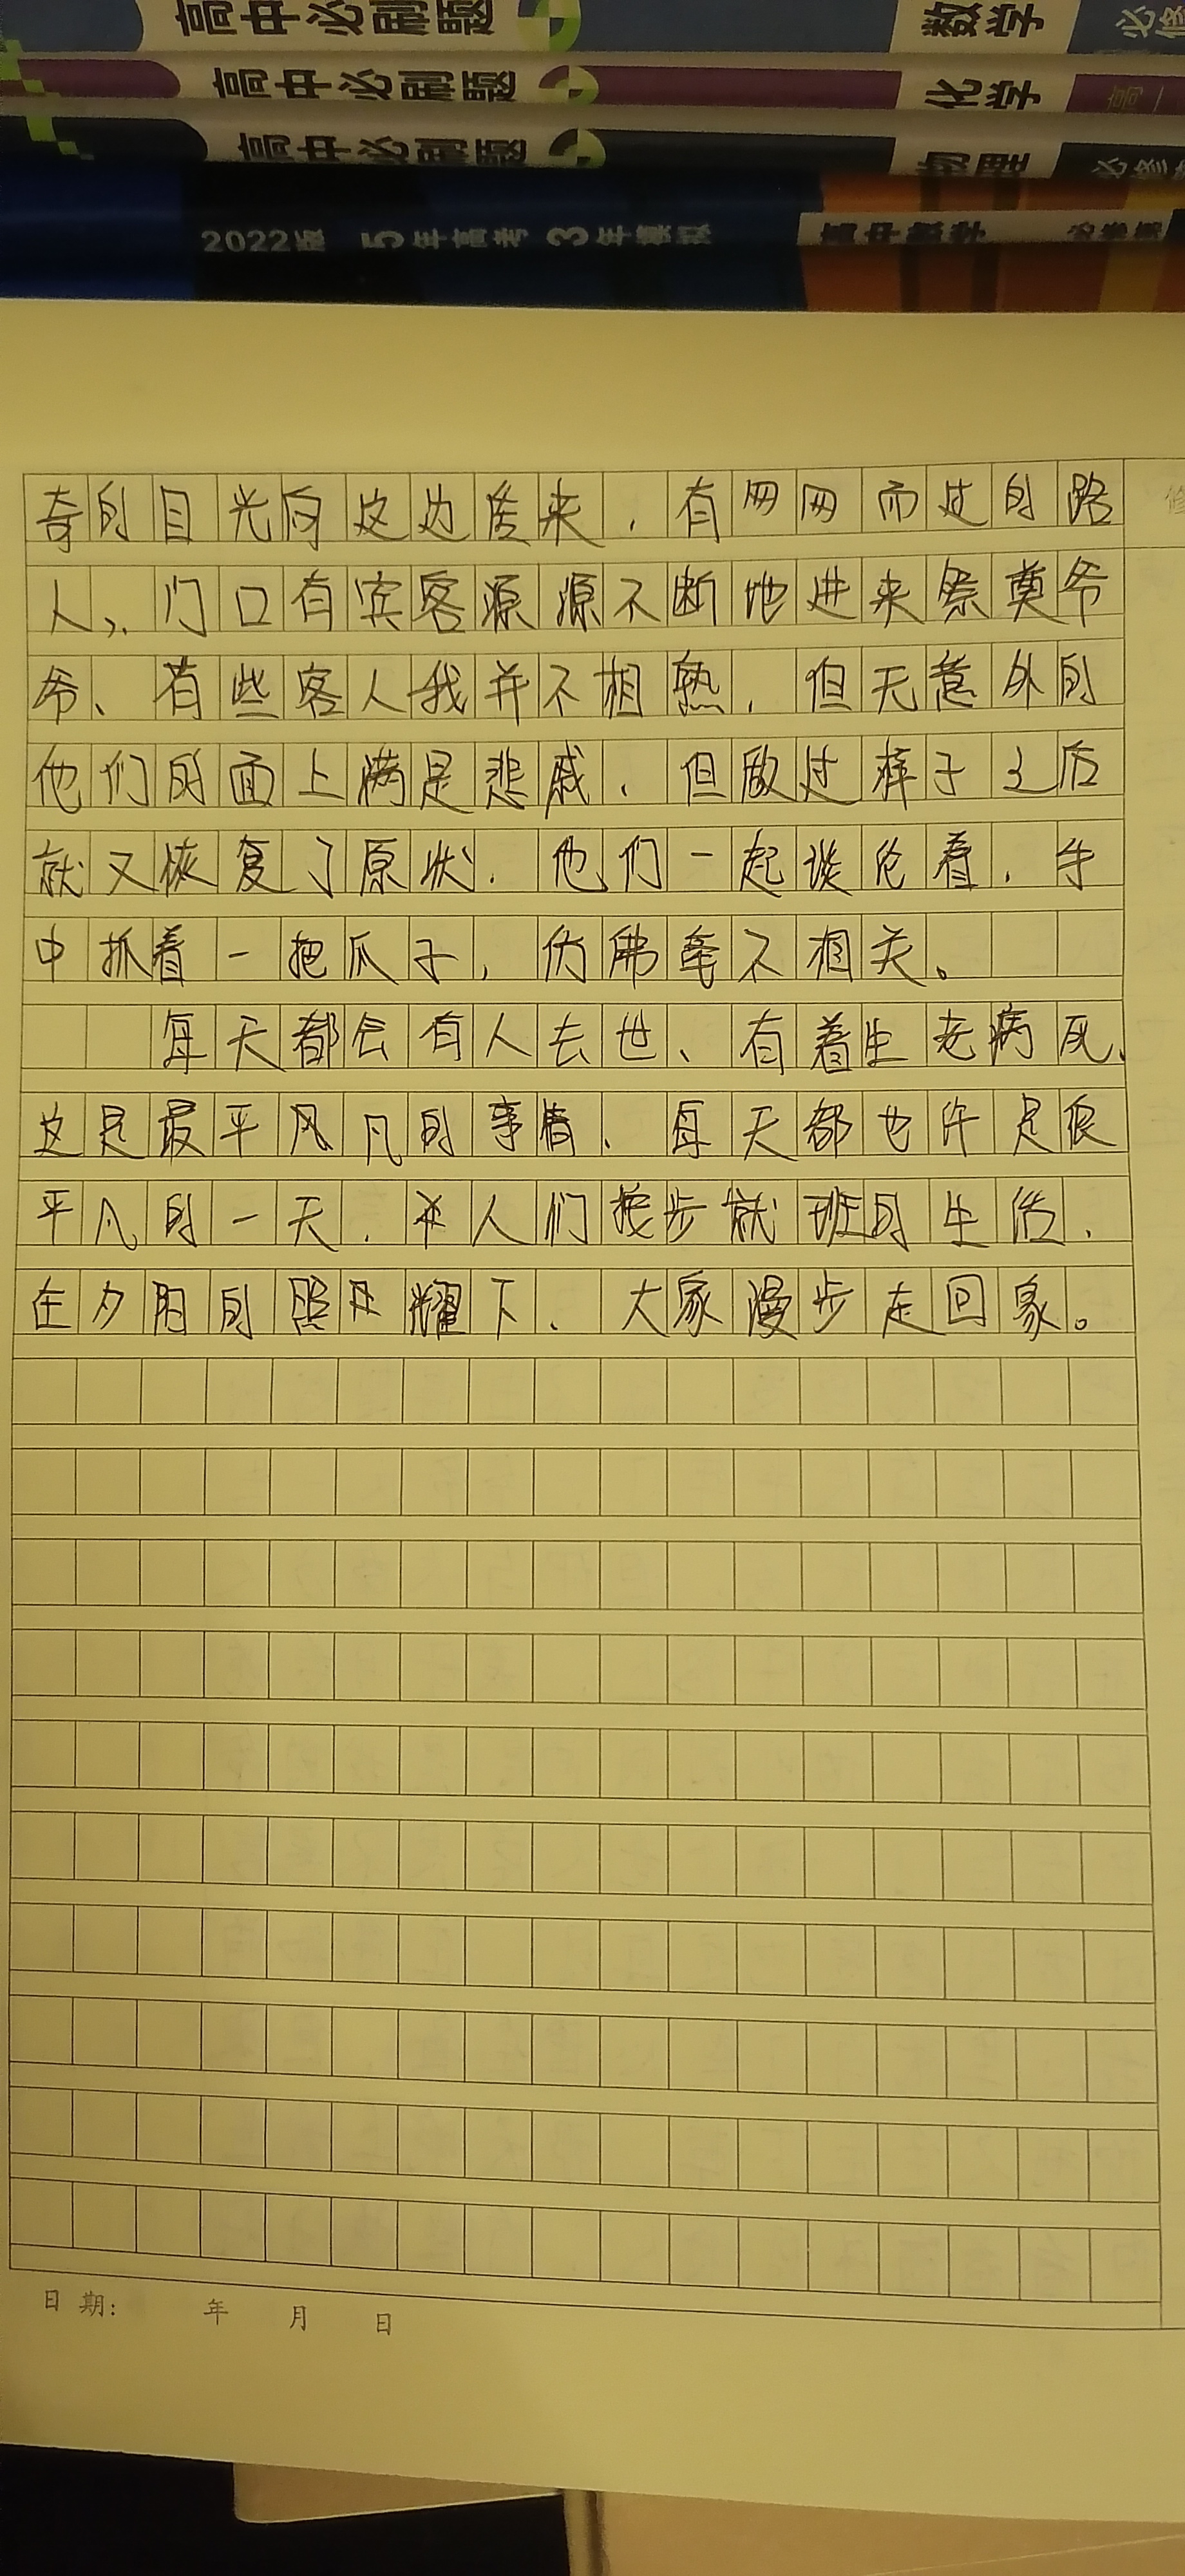 高中必刷题 数学 必修
高中必刷题 化学 高一
高中必刷题 物理 必修
2022版 5年高考 3年模拟 高中数学 必修
奇的目光向这边传来，有网网而过的路
人，门口有宾客源源不断地进来祭奠爷
爷、有些客人我并不相熟，但无意外的
他们的面上满是悲戚，但做过样子之后
就又恢复了原状，他们一起谈论着，手
中抓着一把瓜子，仿佛毫不相关。
每天都会有人去世、有着生老病死、
这是最平风凡的事情、每天都也许是很
平凡的一天，人们按步就班的生活，
在夕阳的照耀下、大家漫步走回家。
日期： 年 月 日